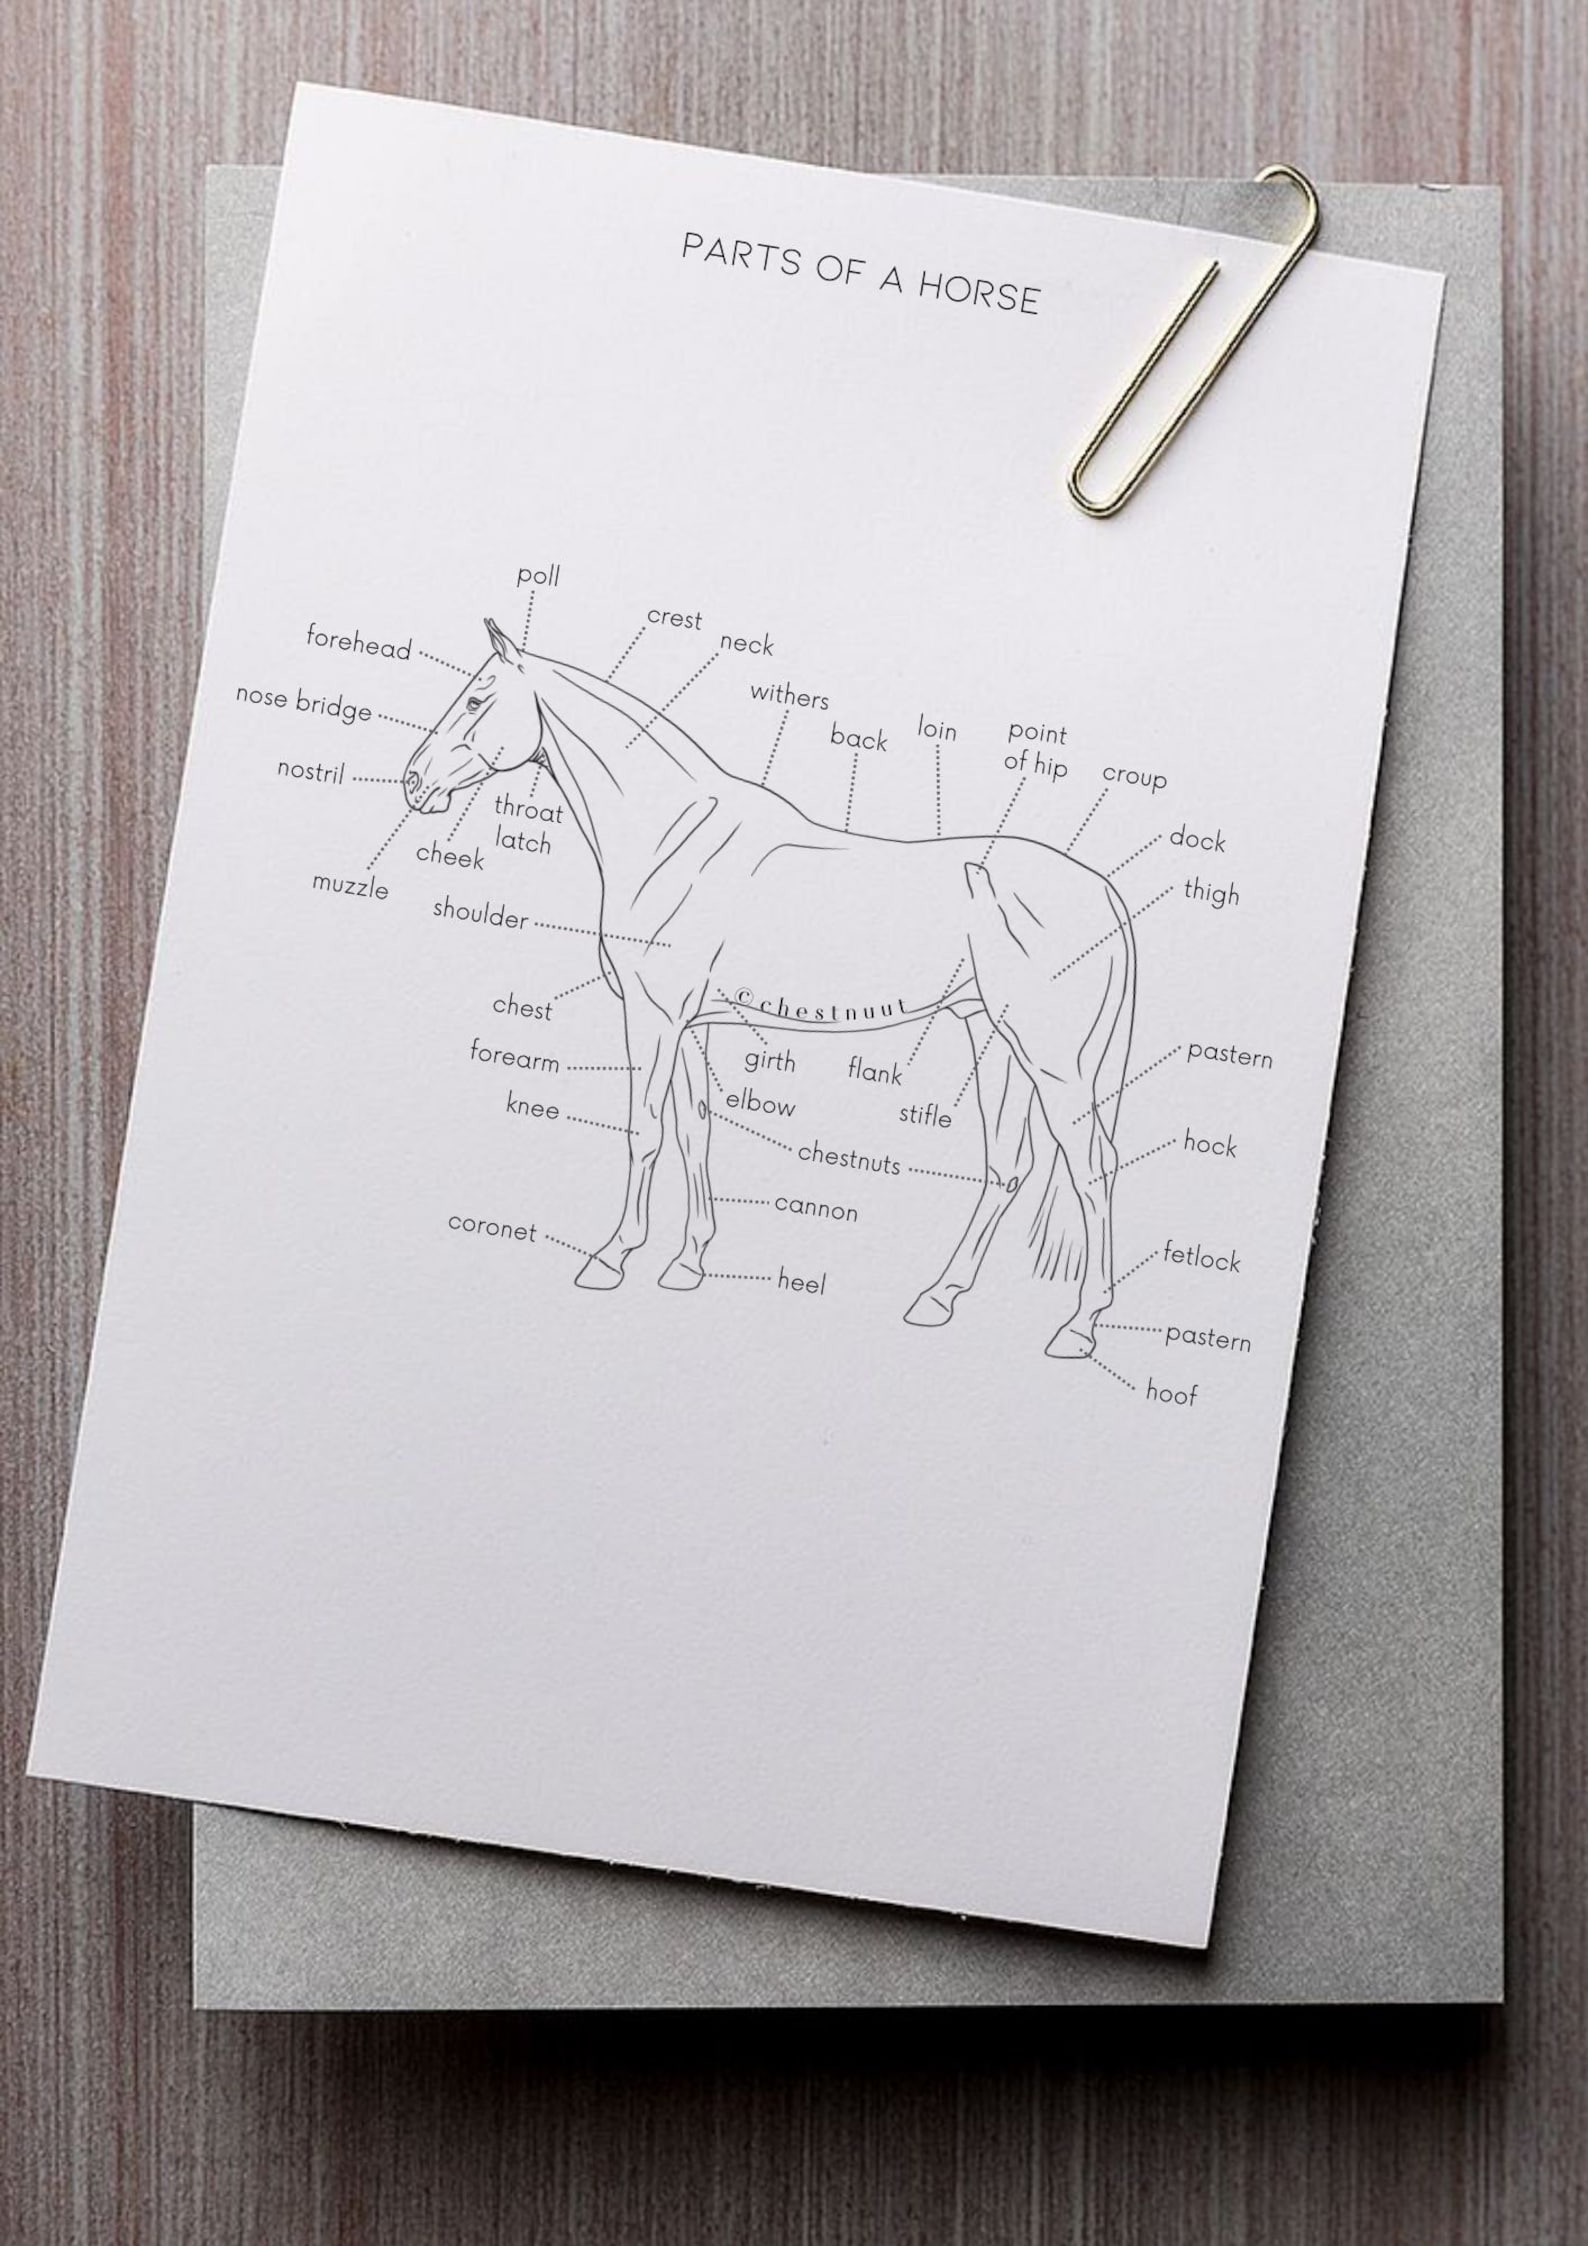 PARTS OF A HORSE
poll
crest
forehead
neck
nose bridge
withers
back
loin
point
of hip
croup
nostril
throat
latch
cheek
muzzle
dock
thigh
shoulder
chest
© chestnuut
forearm
girth
flank
pastern
knee
elbow
stifle
hock
chestnuts
cannon
coronet
fetlock
heel
pastern
hoof